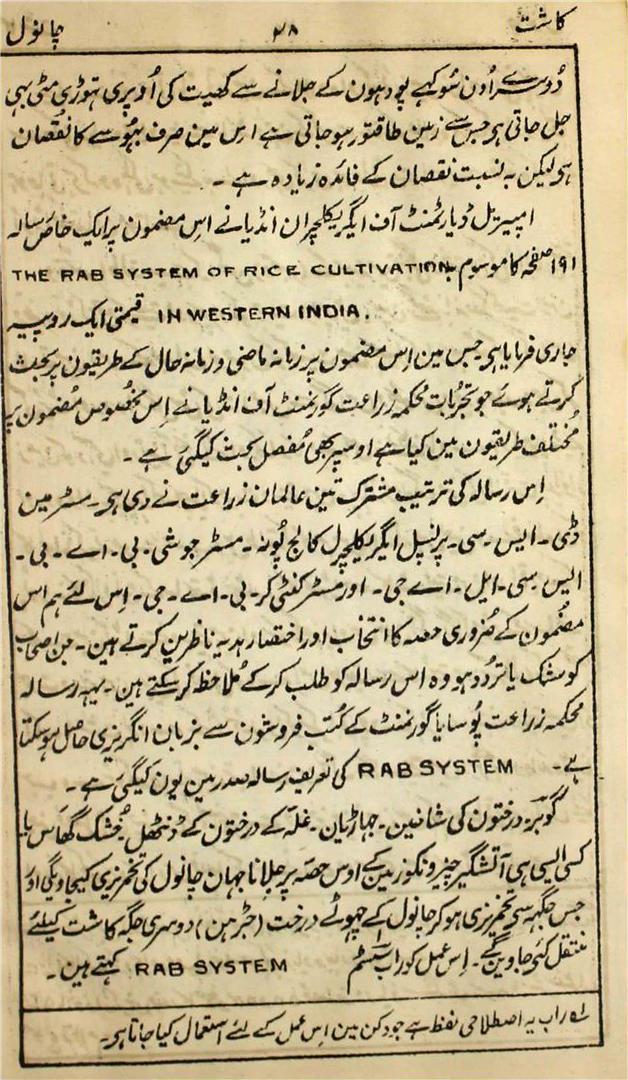 کاشت ۳۸ چانول
دُوسرے اُون سُوکہے پودہون کے جلانے سے کھیت کی اُوپری تہوڑی مٹی بہی
جل جاتی ہو جس سے زمین طاقتور ہوجاتی ہے اس مین صرف بہُوسے کا نقُصان
ہو لیکن بہ نسبت نقصان کے فائدہ زیادہ ہے ۔
امپیریل ڈپارٹمنٹ آف ایگریکلچر ان انڈیا نے اس مضمون پر ایک خاص رسالہ
۱۹۱ صفحہ کا موسوم بہ THE RAB SYSTEM OF RICE CULTIVATION
IN WESTERN INDIA. قیمتی ایک روپیہ
جاری فرمایا ہی جس مین اِس مضمون پر زمانہ ماضی و زمانہ حال کے طریقون پر بحث
کرتے ہوئے جو تجرُبات محکمہ زراعت گورنمنٹ آف انڈیا نے اِس مخصُوص مضمون پر
مُختلف طریقون مین کیا ہے اوسپر بھی مُفصل بحث کیگئی ہے ۔
اِس رسالہ کی ترتیب مشترک تین عالمان زراعت نے دی ہو ۔ مسٹر مین
ڈی ۔ ایس ۔ سی ۔ پرنسپل ایگریکلچرل کالج پُونہ ۔ مسٹر جوشی ۔ بی ۔ اے ۔ بی ۔
ایس سی ۔ ایل ۔ اے جی ۔ اور مسٹر کنٹی کر ۔ بی ۔ اے ۔ جی ۔ اِس لئے ہم اس
مضمون کے ضروری حصہ کا انتخاب اور اختصار ہدیہ ناظرین کرتے ہین ۔ جن اصحاب
کو شک یا تردُد ہو وہ اس رسالہ کو طلب کرکے مُلاحظہ کرسکتے ہین ۔ یہہ رسالہ
محکمہ زراعت پُوسا یا گورنمنٹ کے کُتب فروشون سے بزبان انگریزی حاصل ہوسکتا
ہے ۔ RAB SYSTEM کی تعریف رسالہ صدر مین یون کیگئی ہے ۔
گوبر ۔ درختون کی شاخین ۔ جہاڑیان ۔ غلّہ کے درختون کے ڈنٹھل خُشک گھاس یا
کسی ایسی ہی آتشگیر چیزونکو زمین کے اوس حصّہ پر جلانا جہان چانول کی تخمریزی کیجاویگی اور
جس جگہہ سی تخمریزی ہوکر چانول کے چہوٹے درخت (جڑہن) دوسری جگہ کاشت کیلئے
منتقل کئی جاوینگے ۔ اِس عمل کو راب سسٹم RAB SYSTEM کہتے ہین ۔
لہ راب یہ اصطلاحی لفظ ہے جو دکن مین اِس عمل کے لئے استعمال کیا جاتا ہو ۔